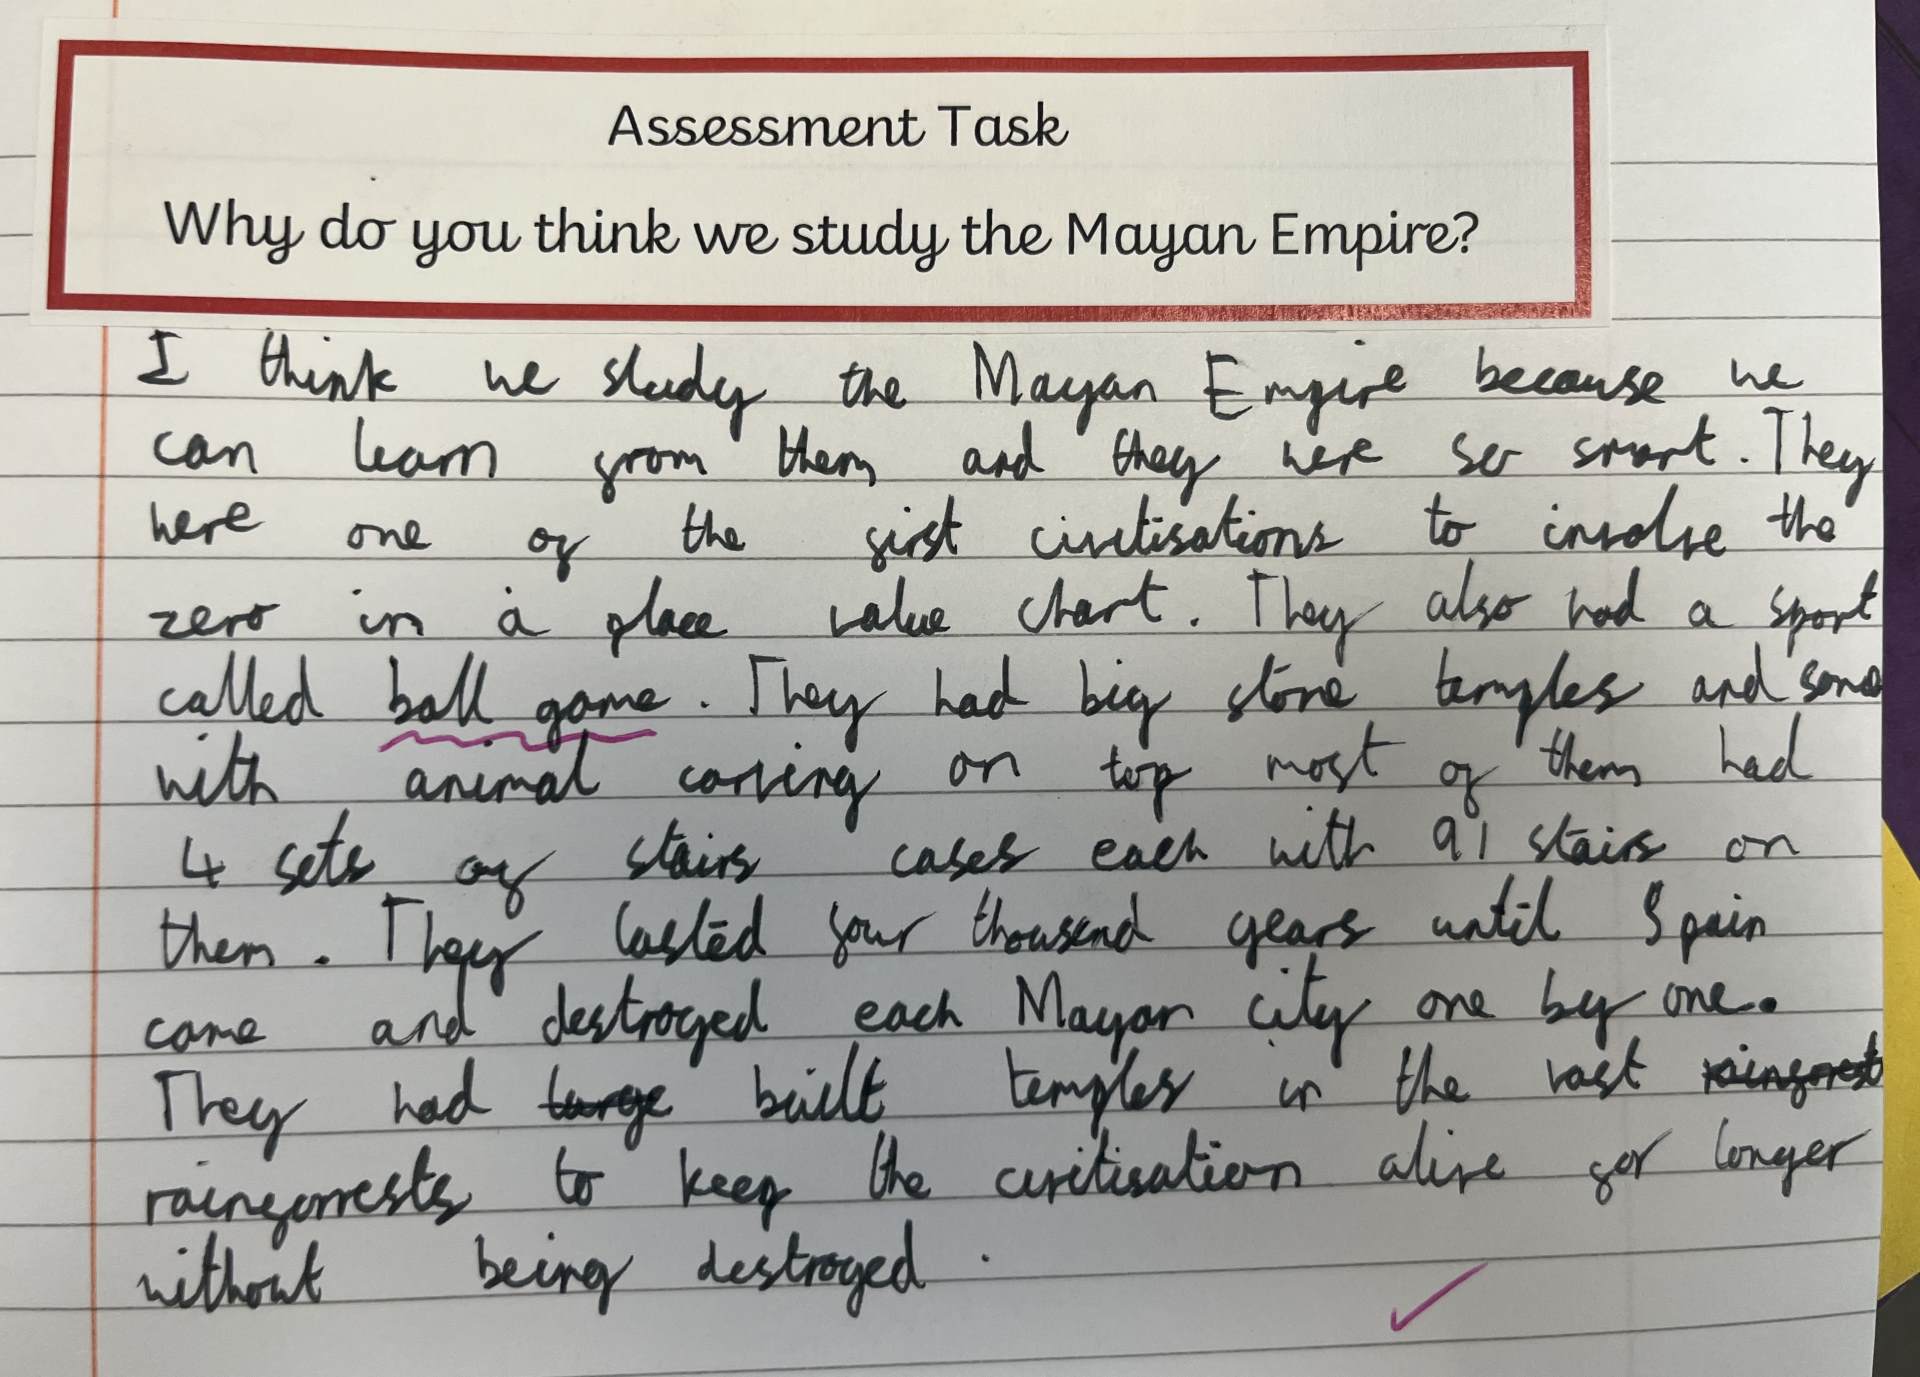 Assessment Task
Why do you think we study the Mayan Empire?
I think we study the Mayan Empire because we
can learn from them and they were so smart. They
were one of the first civilisations to involve the
zero in a place value chart. They also had a sport
called ball game. They had big stone temples and some
with animal carving on top most of them had
4 sets of stairs cases each with 91 stairs on
them. They lasted four thousend years until Spain
came and destroyed each Mayan city one by one.
They had large built temples in the vast rainforest
rainforrests to keep the civilisation alive for longer
without being destroyed.